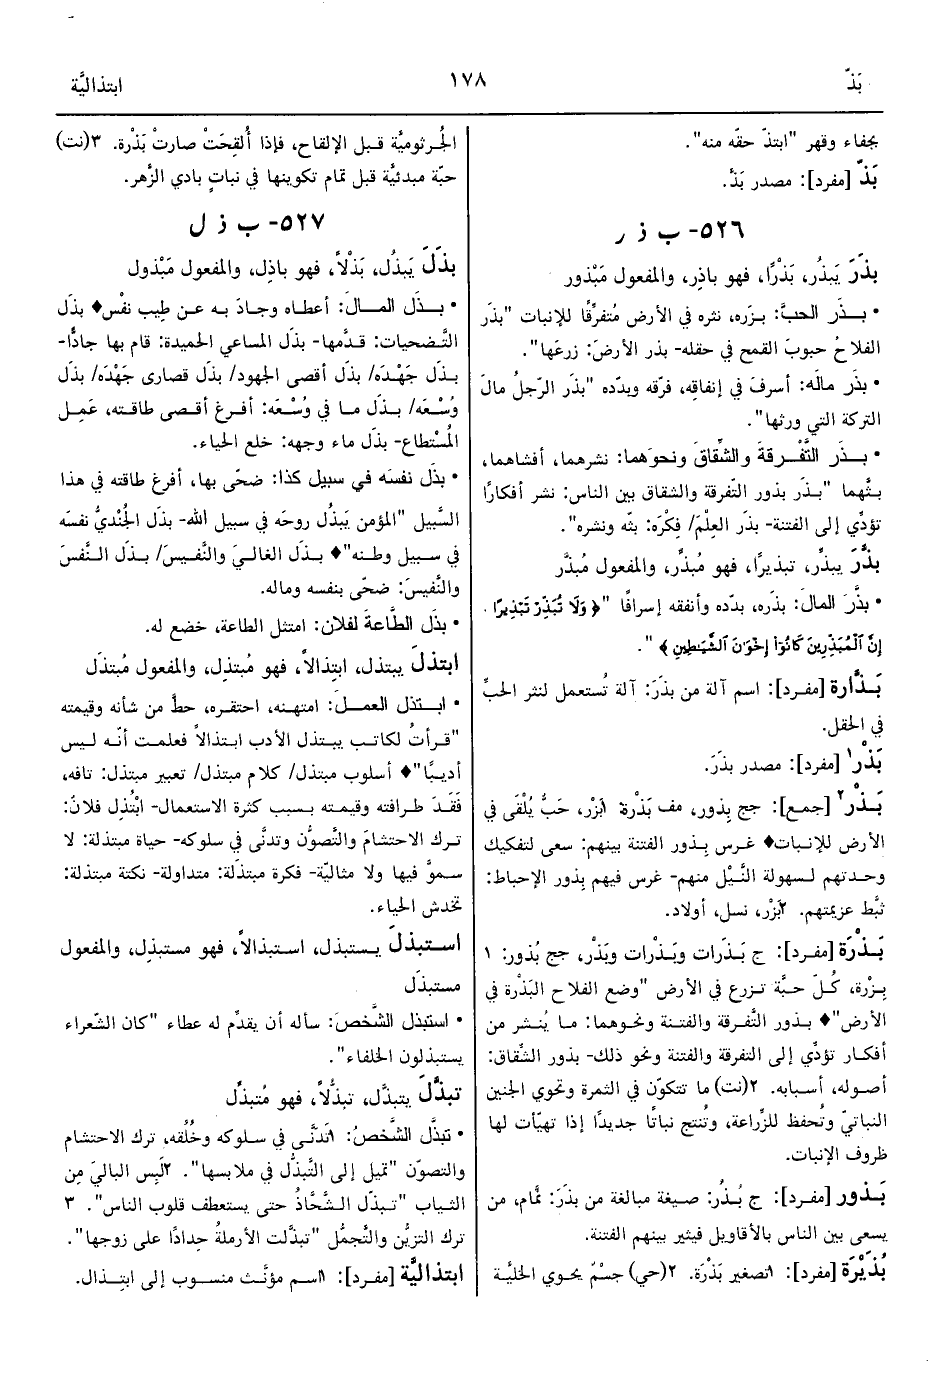 بَذّ
١٧٨
ابتذاليَّة
بجفاء وقهر "ابتذّ حقّه منه".
بَذّ [مفرد]: مصدر بَذَّ.
٥٢٦- ب ذ ر
بذَرَ يَبذُر، بَذْرًا، فهو باذِر، والمفعول مَبْذور
• بـذَر الحبَّ: بزره، نثره في الأرض مُتفرِّقًا للإنبات "بذَر
الفلاحُ حبوبَ القمح في حقله- بذر الأرضَ: زرعَها".
• بذَر مالَه: أسرفَ في إنفاقِه، فرّقه وبدّده "بذَر الرّجلُ مالَ
التركة التي ورثها".
• بـذَر التَّفْرقةَ والشِّقاقَ ونحوَهما: نشرهما، أفشاهما،
بـثَّهما "بـذَر بذور التّفرقة والشقاق بين الناس: نشر أفكارًا
تؤدِّي إلى الفتنة- بذَر العِلْمَ/ فِكْرَه: بثّه ونشره".
بذَّرَ يبذِّر، تبذيرًا، فهو مُبذِّر، والمفعول مُبذَّر
• بذَّر المالَ: بذَره، بدّده وأنفقه إسرافًا "﴿ وَلَا تُبَذِّرْ تَبْذِيرًا .
إِنَّ الْمُبَذِّرِينَ كَانُوٓا إِخْوَٰنَ الشَّيَٰطِينِ ﴾ ".
بَـذَّارة [مفرد]: اسم آلة من بذَرَ: آلة تُستعمل لنثر الحبِّ
في الحقل.
بَذْر١ [مفرد]: مصدر بذَرَ.
بَـذْر٢ [جمع]: جج بِذور، مف بَذْرة: ١بَزْر، حَبٌّ يُلْقَى في
الأرض للإنبات♦ غـرس بِـذور الفتنة بينهم: سعى لتفكيك
وحـدتهم لـسهولة النَّـيْل منهم- غرس فيهم بِذور الإحباط:
ثبَّط عزيمتهم. ٢بَزْر، نسل، أولاد.
بَـذْرَة [مفـرد]: ج بَـذَرات وبَـذْرات وبَذْر، جج بُذور: ١
بِـزْرة، كُـلّ حـبَّة تـزرع في الأرض "وضع الفلاح البَذْرة في
الأرض"♦ بـذور التَّفـرقة والفتـنة ونحـوهما: مـا يُنـشر من
أفكـار تؤدِّي إلى التفرقة والفتنة ونحو ذلك- بذور الشِّقاق:
أصـوله، أسبابه. ٢(نت) ما تتكوّن في الثمرة وتحوي الجنين
النباتيّ وتُحفظ للزِّراعة، وتُنتج نباتًا جديدًا إذا تهيّأت لها
ظروف الإنبات.
بَـذور [مفـرد]: ج بُـذُر: صـيغة مبالغة من بذَرَ: نمَّام، من
يسعى بين الناس بالأقاويل فيثير بينهم الفتنة.
بُذَيْرَة [مفرد]: ١تصغير بَذْرَة. ٢(حي) جسْم يحوي الخليَّة
الجُرثوميَّة قـبل الإلقاح، فإذا أُلقِحَتْ صارتْ بَذْرة. ٣(نت)
حبّة مبدئيَّة قبل تمام تكوينها في نباتٍ بادي الزَّهر.
٥٢٧- ب ذ ل
بذَلَ يَبذُل، بَذْلاً، فهو باذِل، والمفعول مَبْذول
• بـذَل المـالَ: أعطاه وجـادَ بـه عـن طِيب نفْس♦ بذَل
التَّضحيات: قدَّمها- بذَل المساعي الحميدة: قام بها جادًّا-
بـذَل جَهْـدَه/ بذَل أقصى الجهود/ بذَل قصارى جَهْدَه/ بذَل
وُسْـعَه/ بـذَل مـا في وُسْـعَه: أفـرغ أقـصى طاقـته، عَمِـل
المُسْتطاع- بذَل ماء وجهه: خلع الحياء.
• بذَل نفسَه في سبيل كذا: ضحّى بها، أفرغ طاقته في هذا
السَّبيل "المؤمن يَبذُل روحَه في سبيل الله- بذَل الجُنْديُّ نفسَه
في سـبيل وطنـه"♦ بـذَل الغاليَ والنَّفـيسَ/ بـذَل الـنَّفسَ
والنَّفيسَ: ضحّى بنفسه وماله.
• بذَل الطَّاعةَ لفلان: امتثل الطاعة، خضع له.
ابتذلَ يبتذل، ابتِذالاً، فهو مُبتذِل، والمفعول مُبتذَل
• ابـتذل العمـلَ: امتهـنه، احتقـره، حـطَّ من شأنه وقيمته
"قـرأتُ لكاتـب يبـتذل الأدب ابـتذالاً فعلمت أنّـه لـيس
أديـبًا"♦ أسـلوب مبتذل/ كلام مبتذل/ تعبير مبتذل: تافه،
فَقَـدَ طـرافته وقيمـته بـسبب كثرة الاستعمال- ابْتُذِل فلانٌ:
تـرك الاحتـشامَ والتَّصوُّن وتدنَّى في سلوكه- حياة مبتذلة: لا
سـموَّ فيها ولا مثاليّة- فكرة مبتذلَة: متداولة- نكتة مبتذلة:
تخدش الحياء.
اسـتبذلَ يـستبذل، اسـتبذالاً، فهـو مستبذِل، والمفعول
مستبذَل
• استبذل الشَّخصَ: سأله أن يقدِّم له عطاء "كان الشّعراء
يستبذلون الخلفاء".
تبذَّلَ يتبذَّل، تبذُّلاً، فهو مُتبذِّل
• تبذَّل الشَّخصُ: ١تَدَنَّـى في سـلوكه وخُلُقه، ترك الاحتشام
والتصوّن "تميل إلى التَّبذُّل في ملابسها". ٢لَبِس البالي مِن
الثياب "تـبذَّل الـشَّحَّاذُ حتى يستعطف قلوب الناس". ٣
ترك التزيُّن والتَّجمُّل "تبذَّلت الأرملةُ حِدادًا على زوجها".
ابتذاليَّة [مفـرد]: ١اسـم مؤنَّـث منسـوب إلى ابـتذال.